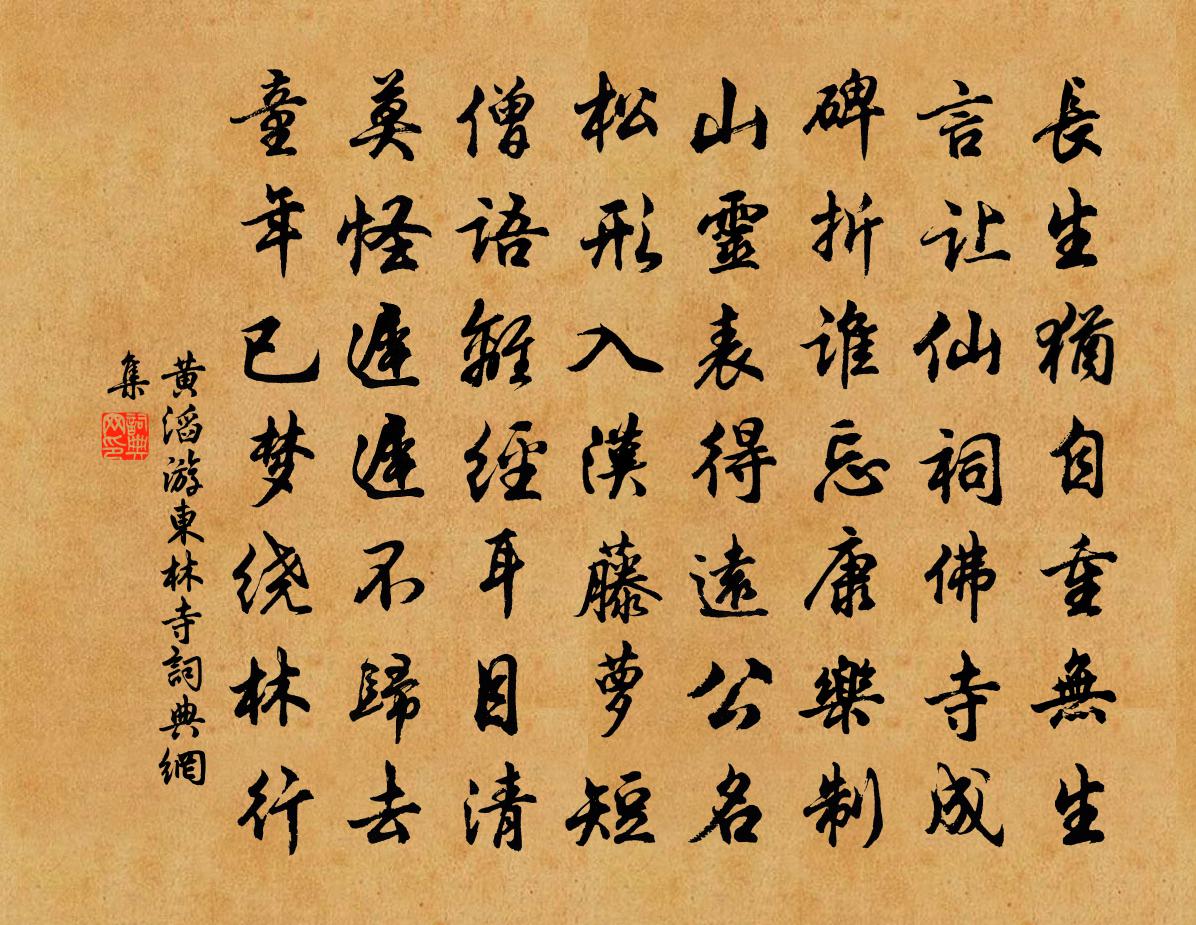 長生猶自重無生
言让仙祠佛寺成
碑折誰忘康樂制
山靈表得遠公名
松形入漢藤萝短
僧語離經耳目清
莫怪遲遲不歸去
童年已梦绕林行
黄滔游東林寺詞典網
集
詞典
网印